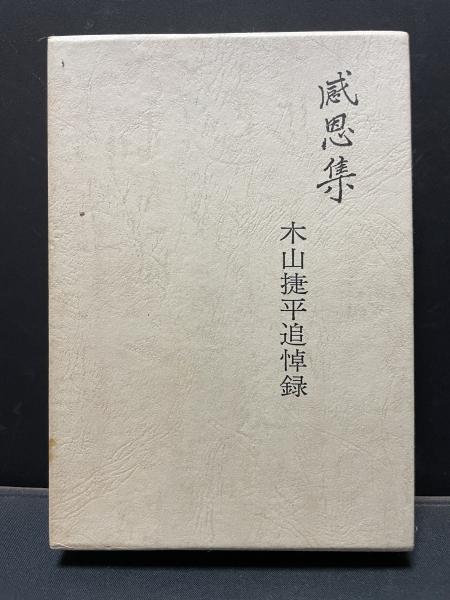 感恩集
木山捷平追悼録